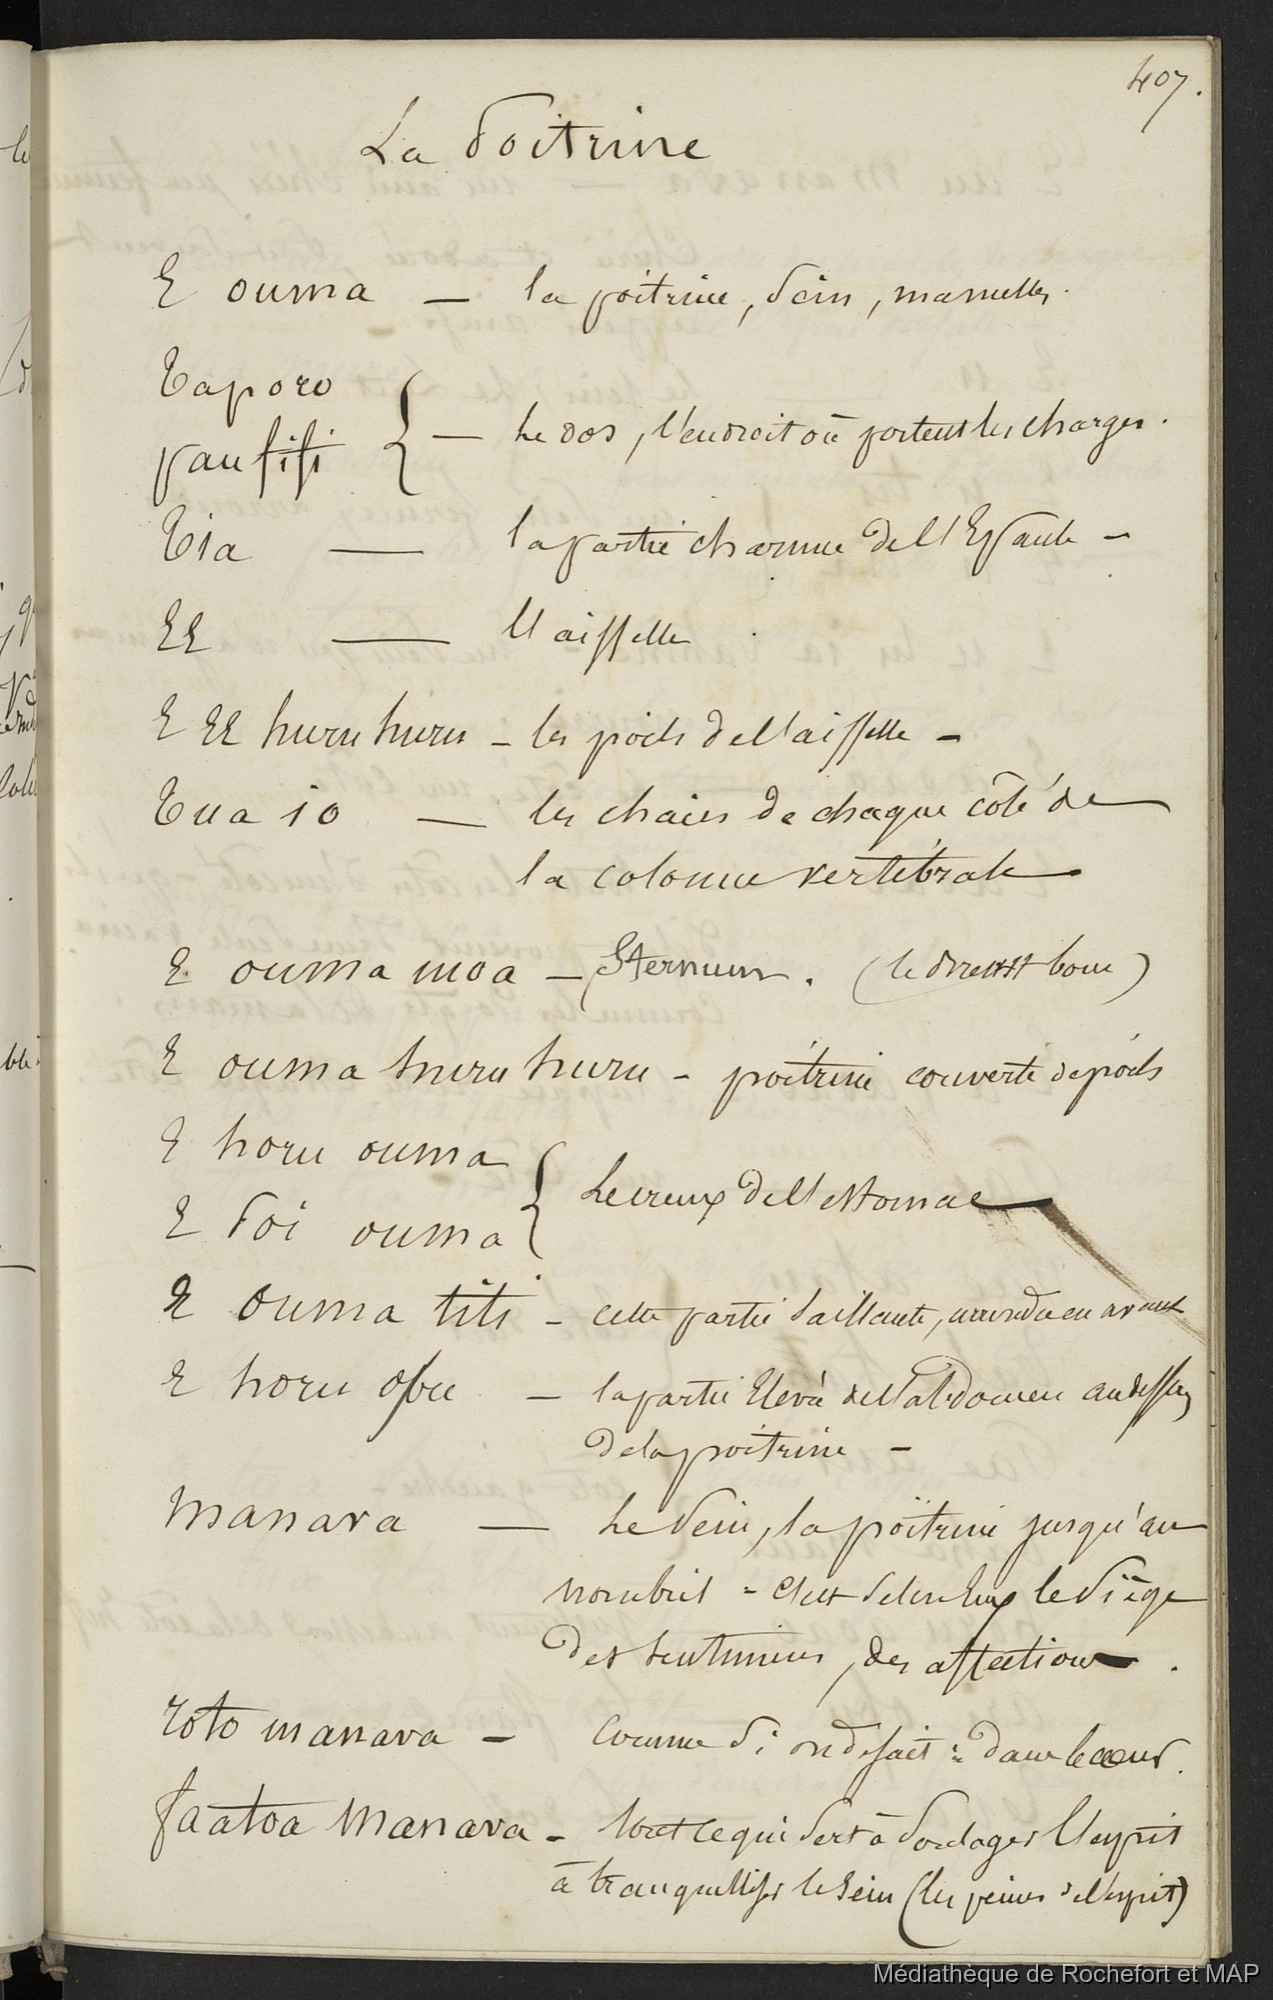 407.
La Poitrine
E ouma — la poitrine, sein, mamelles.
Taporo
paufifi } — Le dos, l'endroit où portent les charges.
Tia — la partie charnue de l'Epaule -
EE — l'aisselle.
E EE huru huru - les poils de l'aisselle -
Tua io — les chairs de chaque côté de
la colonne vertébrale
E ouma moa — Sternum. (le brechet
E ouma huru huru - poitrine couverte de poils
E horu ouma
E Poi ouma } Le creux de l'estomac
E ouma titi - cette partie saillante, arrondie en avant
E horu obu — la partie Elevée de l'abdomen au dessus
de la poitrine -
Manava — Le sein, la poitrine jusqu'au
nombril - C'est selon Eux le siège
des sentimens, des affections.
roto manava - comme si on disait : dans le cœur.
faatoa Manava - tout ce qui sert à soulager l'esprit
à tranquilliser le sein (les peines de l'esprit)
Médiathèque de Rochefort et MAP